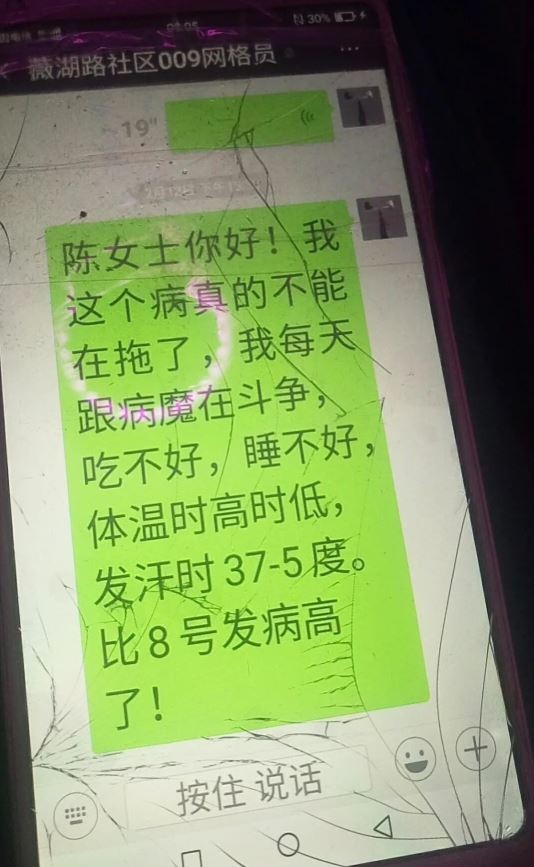 30%
薇湖路社区009网格员
19"
陈女士你好！我
这个病真的不能
在拖了，我每天
跟病魔在斗争，
吃不好，睡不好，
体温时高时低，
发汗时37-5度。
比8号发病高
了！
按住 说话